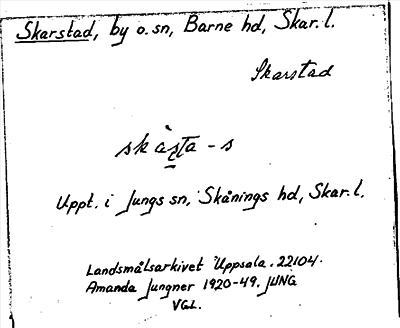 Skarstad, by o. sn, Barne hd, Skar. l.
Skarstad
skàs̱ta - s
Uppt. i Jungs sn, Skånings hd, Skar. l.
Landsmålsarkivet Uppsala. 22104.
Amanda Jungner 1920-49. JUNG
VGL.